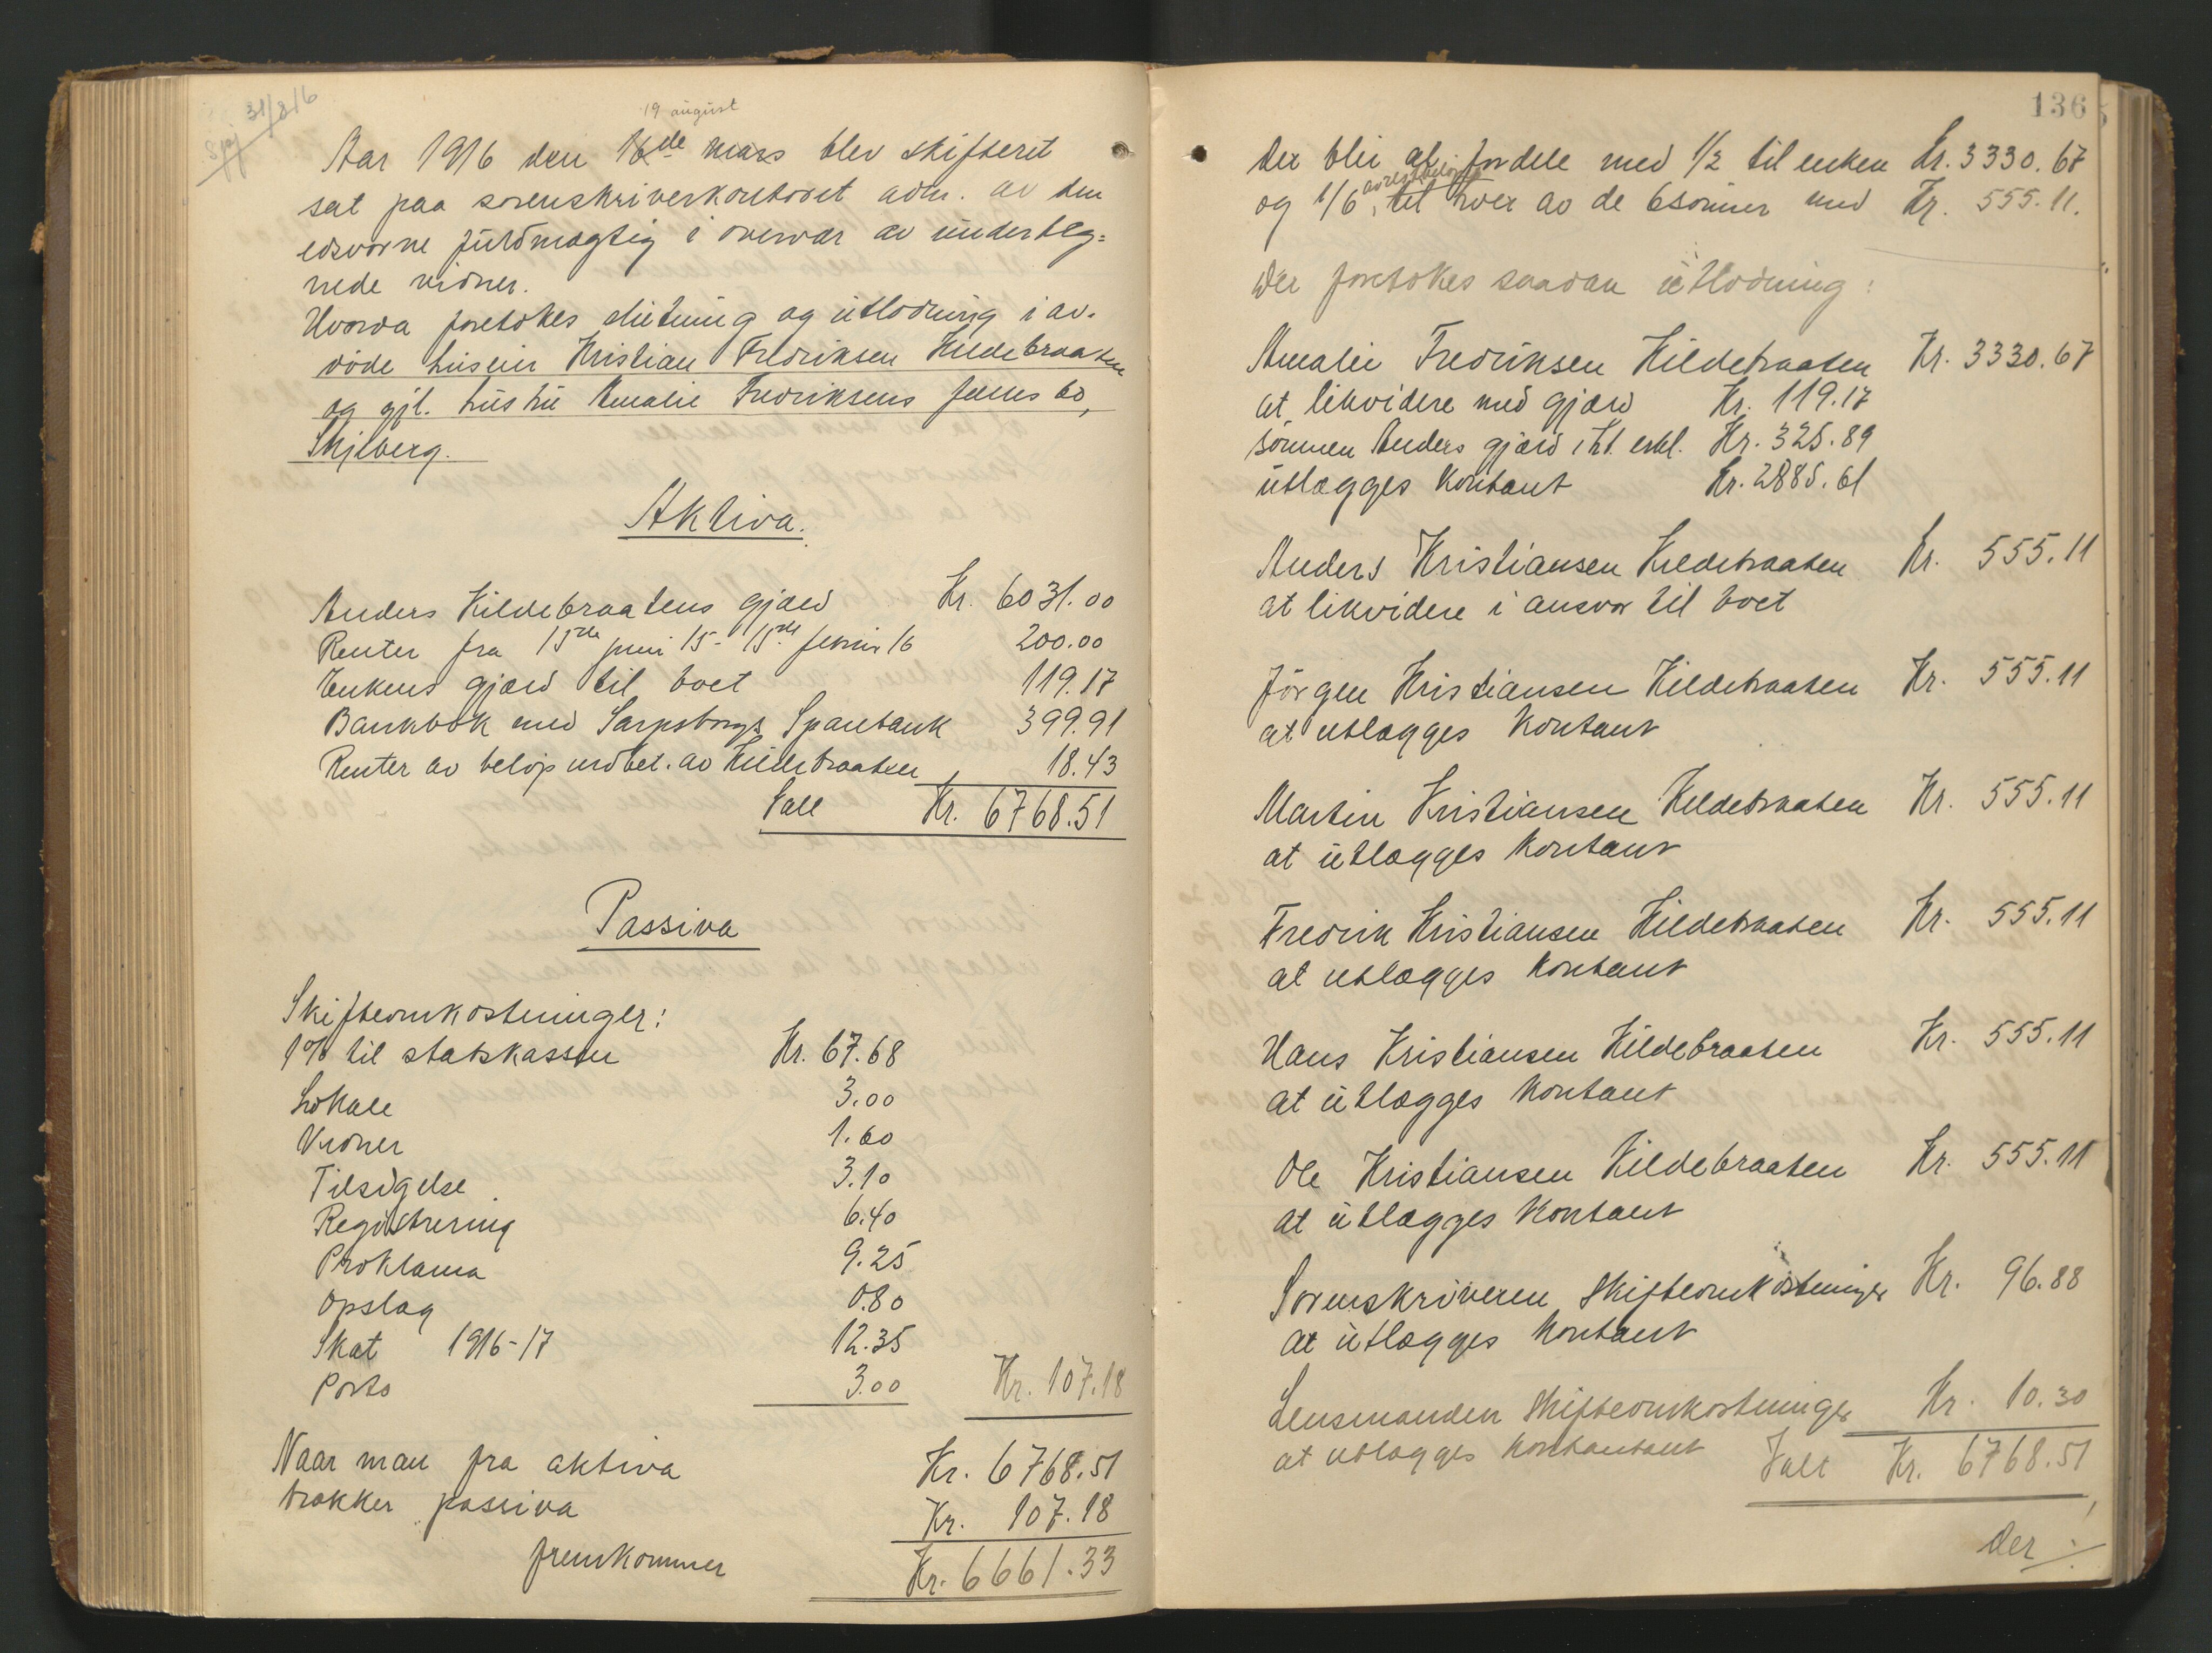 31/8 16
19 august
Aar 1916 den 16de mars blev skifteret
sat paa sorenskriverkontoret adm. av den
edsvorne fuldmægtig i overvær av underteg=
nede vidner.
Hvorda foretokes slutning og utlodning i av-
døde huseier Kristian Fredriksen Kildebraaten
og gjl. hustru Amalie Fredriksens fælles bo,
Skjeberg.
Aktiva.
Anders Kildebraatens gjæld Kr. 6031.00
Renter fra 15de juni 15 - 15de februar 16 200.00
Enkens gjæld til boet 119.17
Bankbok med Sarpsborgs Sparebank 399.91
Renter av beløp indbet. av Kildebraaten 18.43
Ialt Kr. 6768.51
Passiva
Skifteomkostninger:
1% til statskassen Kr. 67.68
Lokale 3.00
Vidner 1.60
Tilsigelse 3.10
Registrering 6.40
Proklama 9.25
Opslag 0.80
Skat 1916-17 12.35
Porto 3.00 Kr. 107.18
Naar man fra aktiva Kr. 6768.51
trækker passiva Kr. 107.18
fremkommer Kr. 6661.33
136
der blir at fordele med 1/2 til enken Kr. 3330.67
av restbeløpet
og 1/6, til hver av de 6 sønner med Kr. 555.11.
Der foretokes saadan utlodning:
Amalie Fredriksen Kildebraaten Kr. 3330.67
at likvidere med gjæld Kr. 119.17
sønnen Anders gjæld iht. erkl. Kr. 325.89
utlægges kontant Kr. 2885.61
Anders Kristiansen Kildebraaten Kr. 555.11
at likvidere i ansvar til boet
Jørgen Kristiansen Kildebraaten Kr. 555.11
at utlægges kontant
Martin Kristiansen Kildebraaten Kr. 555.11
at utlægges kontant
Fredrik Kristiansen Kildebraaten Kr. 555.11
at utlægges kontant
Hans Kristiansen Kildebraaten Kr. 555.11
at utlægges kontant
Ole Kristiansen Kildebraaten Kr. 555.11
at utlægges kontant
Sorenskriveren, skifteomkostninger Kr. 96.88
at utlægges kontant
Lensmanden skifteomkostninger Kr. 10.30
at utlægges kontantant Ialt Kr. 6768.51
der